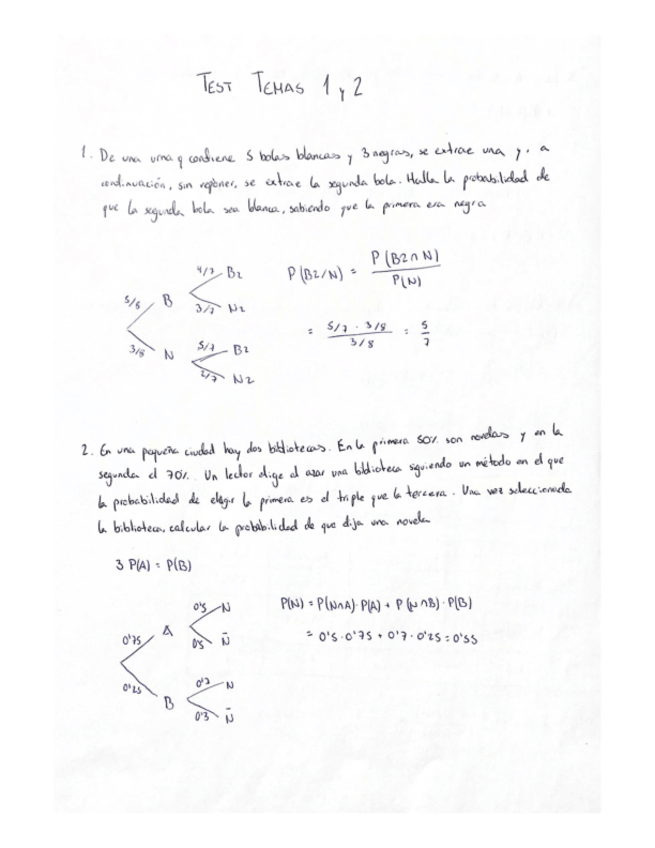 TEST TEMAS 1 y 2
1. De una urna q contiene 5 bolas blancas y 3 negras, se extrae una y, a
continuación, sin reponer, se extrae la segunda bola. Halla la probabilidad de
que la segunda bola sea blanca, sabiendo que la primera era negra
4/7 B2 P(B2/N) = P(B2∩N)
P(N)
5/8 B
3/7 N2
= 5/7 · 3/8 = 5
3/8 7
3/8 N 5/7 B2
2/7 N2
2. En una pequeña ciudad hay dos bibliotecas. En la primera 50% son novelas y en la
segunda el 70%. Un lector elige al azar una biblioteca siguiendo un método en el que
la probabilidad de elegir la primera es el triple que la tercera. Una vez seleccionada
la biblioteca, calcular la probabilidad de que elija una novela
3 P(A) = P(B)
0'5 N P(N) = P(N∩A)·P(A) + P(N∩B)·P(B)
0'75 A
0'5 N̄ = 0'5·0'75 + 0'7·0'25 = 0'55
0'25 B 0'7 N
0'3 N̄